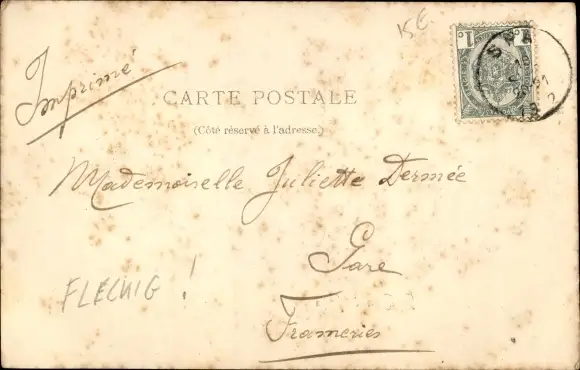 15 €
Imprimé
1 1
SPA
CARTE POSTALE
(Côté réservé à l'adresse.)
Mademoiselle Juliette Dermée
Gare
FLECKIG !
Frameries